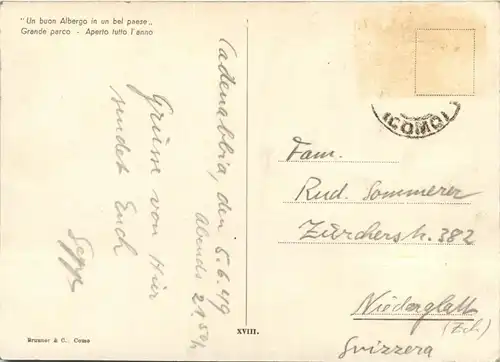 "Un buon Albergo in un bel paese„
Grande parco - Aperto tutto l'anno
Cadenabbia, den 5.6.49
Abends 21.50h
Grüsse von Hier
sendet Euch
Sepp
Brunner & C., Como
XVIII.
(COMO)
Fam.
Rud. Sommerer
Zürcherstr. 382
Niederglatt
(Zch)
Svizzera